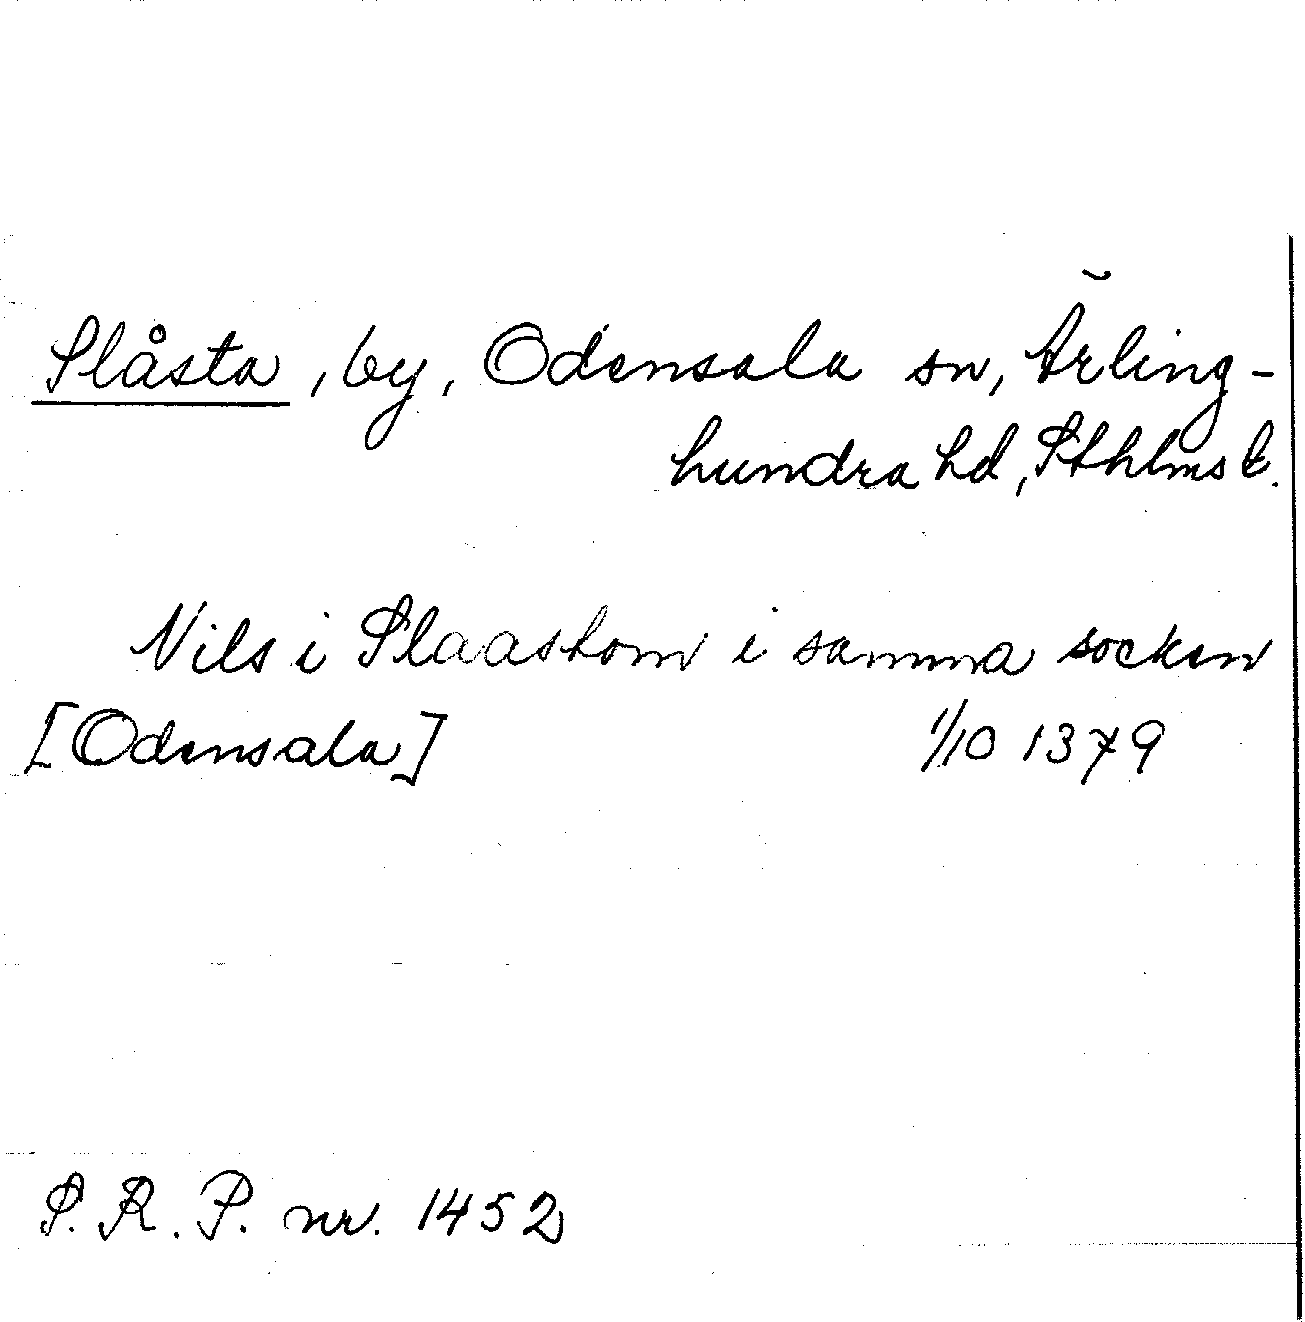 Slåsta, by, Odensala sn, Ärling-
hundra hd, Sthlms l.
Nils i Slaastom i samma socken
[Odensala] 1/10 1379
S. R. P. nr. 1452